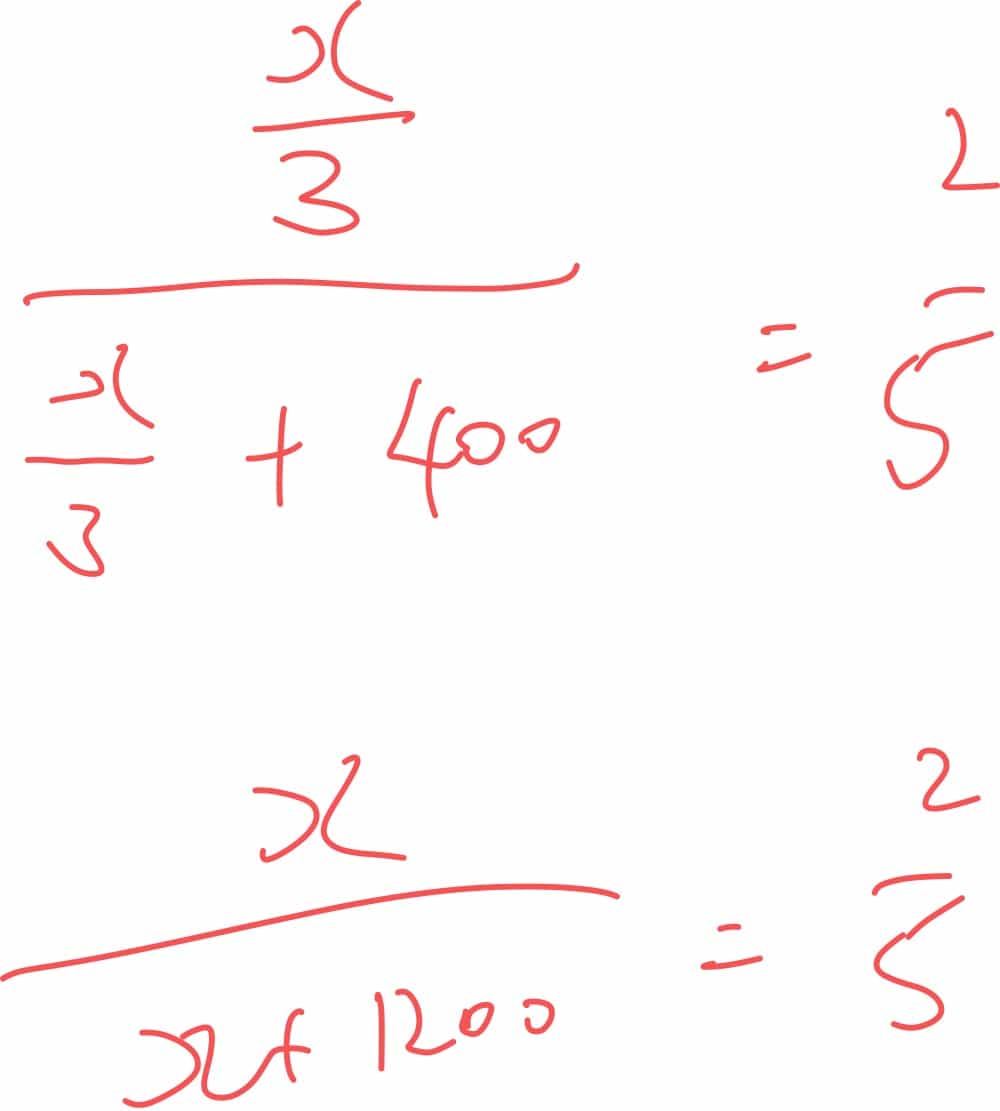 x/3 / (x/3 + 400) = 2/5
x / (x + 1200) = 2/5